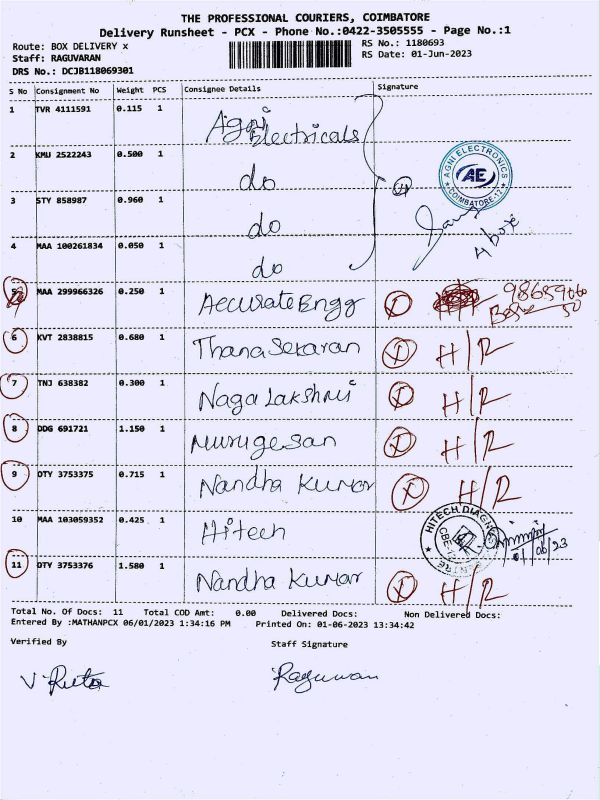 THE PROFESSIONAL COURIERS, COIMBATORE
Delivery Runsheet - PCX - Phone No.:0422-3505555 - Page No.:1
Route: BOX DELIVERY x RS No.: 1180693
Staff: RAGUVARAN RS Date: 01-Jun-2023
DRS No.: DCJB118069301
S No Consignment No Weight PCS Consignee Details Signature
1 TVR 4111591 0.115 1 Agni Electricals
2 KMU 2522243 0.500 1 do
AGNI ELECTRONICS
AE
COIMBATORE-12
3 STY 858987 0.960 1 do
4 MAA 100261834 0.050 1 do
5 MAA 299966326 0.250 1 Accurate Engg D
6 KVT 2838815 0.680 1 Thanasekaran D H/R
7 TNJ 638382 0.300 1 Naga Lakshmi D H/R
8 DDG 691721 1.150 1 Murugesan D H/R
9 OTY 3753375 0.715 1 Nandha Kumar D H/R
10 MAA 103059352 0.425 1 Hitech
HITECH DIAGNOSTIC CENTRE
01/06/23
11 OTY 3753376 1.580 1 Nandha Kumar D H/R
Total No. Of Docs: 11 Total COD Amt: 0.00 Delivered Docs: Non Delivered Docs:
Entered By :MATHANPCX 06/01/2023 1:34:16 PM Printed On: 01-06-2023 13:34:42
Verified By Staff Signature
Raguvaran